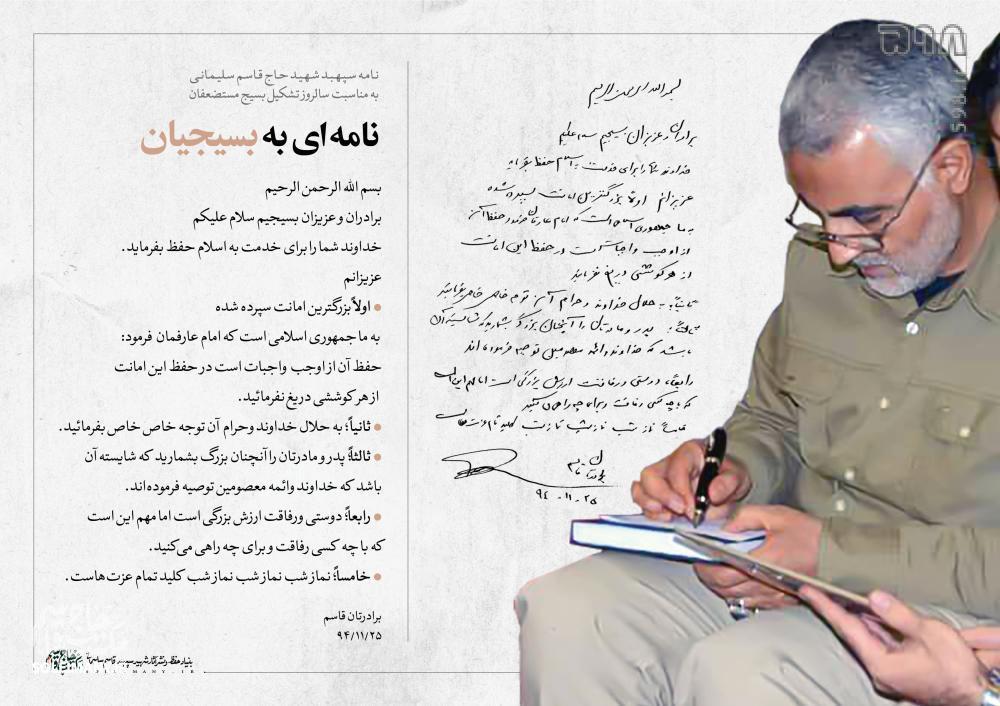 نامه سپهبد شهید حاج قاسم سلیمانی
به مناسبت سالروز تشکیل بسیج مستضعفان
نامه‌ای به بسیجیان
بسم الله الرحمن الرحیم
برادران و عزیزان بسیجیم سلام علیکم
خداوند شما را برای خدمت به اسلام حفظ بفرماید.
عزیزانم
• اولاً بزرگترین امانت سپرده شده
به ما جمهوری اسلامی است که امام عارفمان فرمود:
حفظ آن از اوجب واجبات است در حفظ این امانت
از هر کوششی دریغ نفرمائید.
• ثانیاً؛ به حلال خداوند و حرام آن توجه خاص خاص بفرمائید.
• ثالثاً؛ پدر و مادرتان را آنچنان بزرگ بشمارید که شایسته آن
باشد که خداوند وائمه معصومین توصیه فرموده‌اند.
• رابعاً؛ دوستی ورفاقت ارزش بزرگی است اما مهم این است
که با چه کسی رفاقت و برای چه راهی می‌کنید.
• خامساً؛ نماز شب نماز شب نماز شب کلید تمام عزت هاست.
برادرتان قاسم
۹۴/۱۱/۲۵
بنیاد حفظ و نشر آثار شهید سپهبد قاسم سلیمانی
بسم الله الرحمن الرحیم
برادران و عزیزان بسیجیم سلام علیکم
خداوند شما را برای خدمت به اسلام حفظ بفرماید
عزیزانم اولاً بزرگترین امانت سپرده شده
به ما جمهوری اسلامی است که امام عارفمان فرمود حفظ آن
از اوجب واجبات است در حفظ این امانت
از هر کوششی دریغ نفرمائید
ثانیاً؛ به حلال خداوند و حرام آن توجه خاص خاص بفرمائید
ثالثاً؛ پدر و مادرتان را آنچنان بزرگ بشمارید که شایسته آن
باشد که خداوند وائمه معصومین توصیه فرموده‌اند
رابعاً؛ دوستی ورفاقت ارزش بزرگی است اما مهم این است
که با چه کسی رفاقت و برای چه راهی می‌کنید
خامساً نماز شب نماز شب نماز شب کلید تمام عزت هاست
برادرتان قاسم
۹۴-۱۱-۲۵
۵۹۸
598.ir